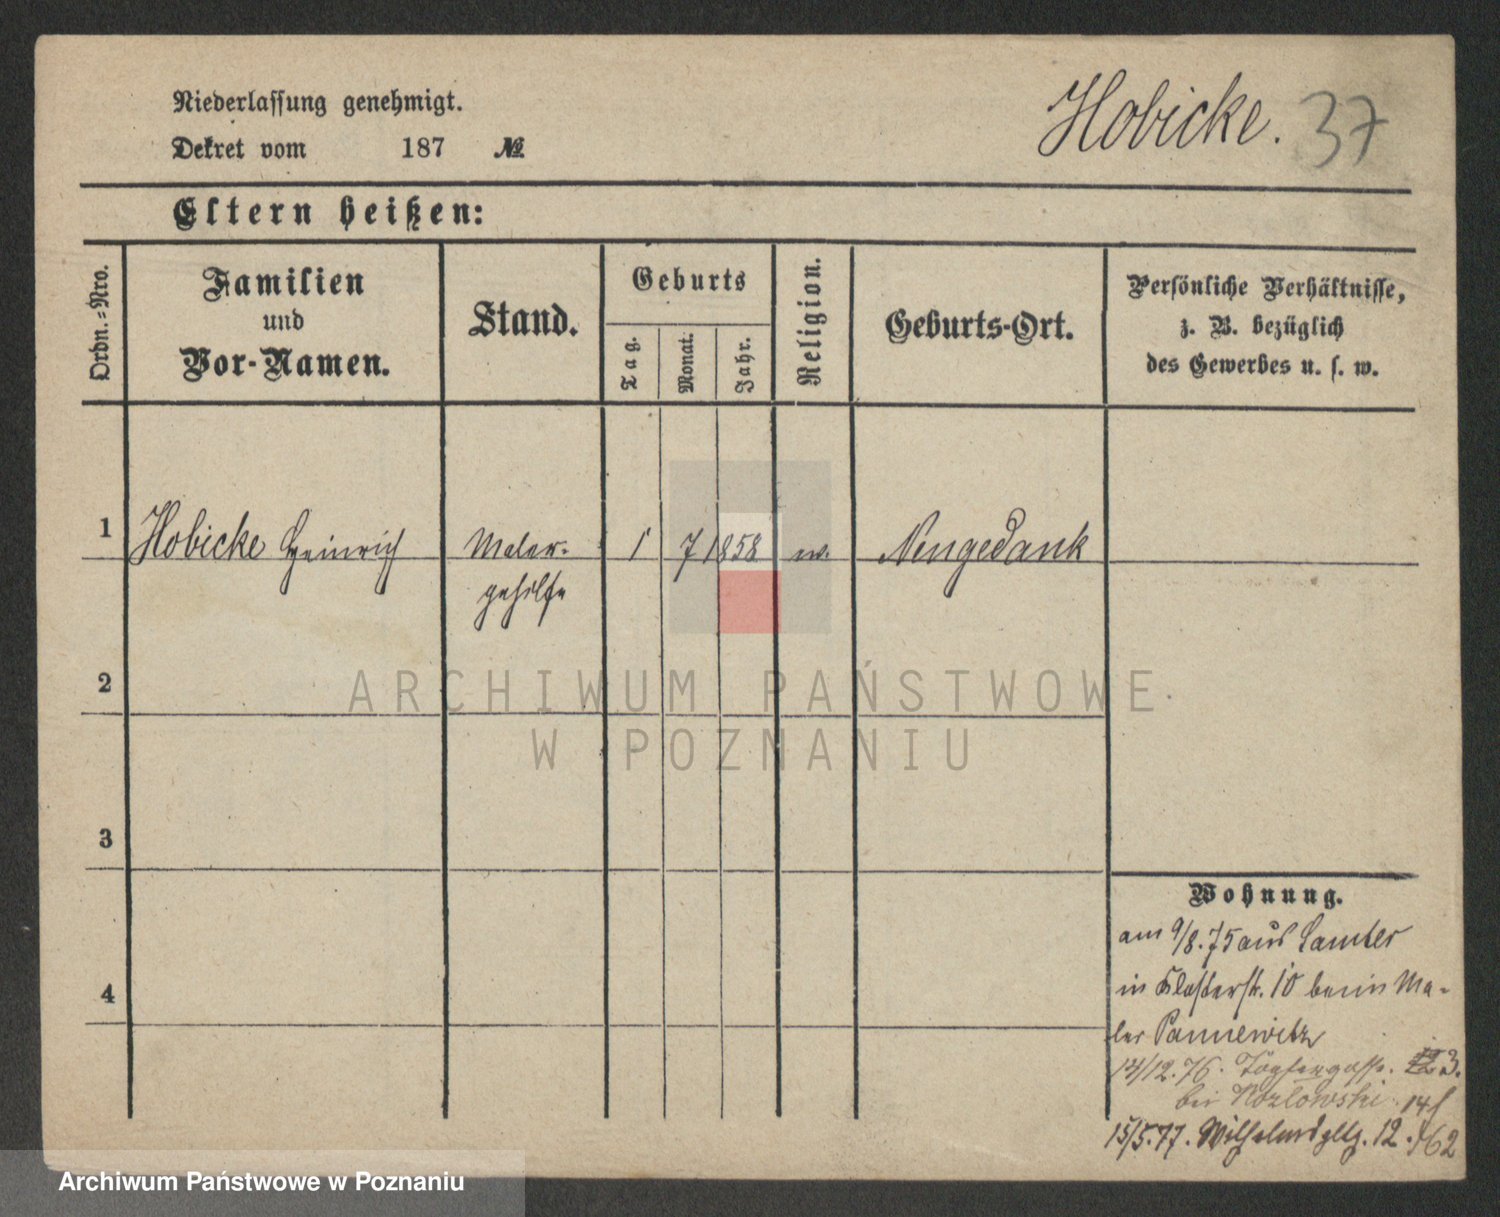 Niederlassung genehmigt.
Dekret vom 187 №
Hobicke. 37
Eltern heißen:
Ordn.=Nro.
Familien
und
Vor-Namen.
Stand.
Geburts
Tag.
Monat.
Jahr.
Religion.
Geburts-Ort.
Persönliche Verhältnisse,
z. B. bezüglich
des Gewerbes u. s. w.
1 Hobicke Heinrich Maler- 1 7 1858 Neugedank
gehilfe
2
ARCHIWUM PAŃSTWOWE
W POZNANIU
3
4
Wohnung.
am 9/8.75 aus Samter
in Klosterstr. 10 beim Ma-
ler Pannewitz
14/12.76. Töpfergasse. 3.
bei Kozlowski
15/5.77. Wilhelmsplatz. 12.
Archiwum Państwowe w Poznaniu